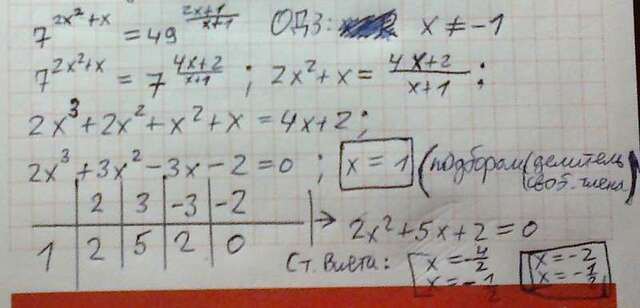 7^{2x²+x} = 49^{\frac{2x+1}{x+1}} ОДЗ: x ≠ -1
7^{2x²+x} = 7^{\frac{4x+2}{x+1}} ; 2x²+x = \frac{4x+2}{x+1} ;
2x³+2x²+x²+x = 4x+2 ;
2x³+3x²-3x-2=0 ; x=1 (подбором (делитель своб. члена)
2 3 -3 -2
1 2 5 2 0 → 2x²+5x+2=0
Ст. Виета: x=-\frac{4}{2} x=-2
x=-\frac{1}{2} x=-\frac{1}{2}